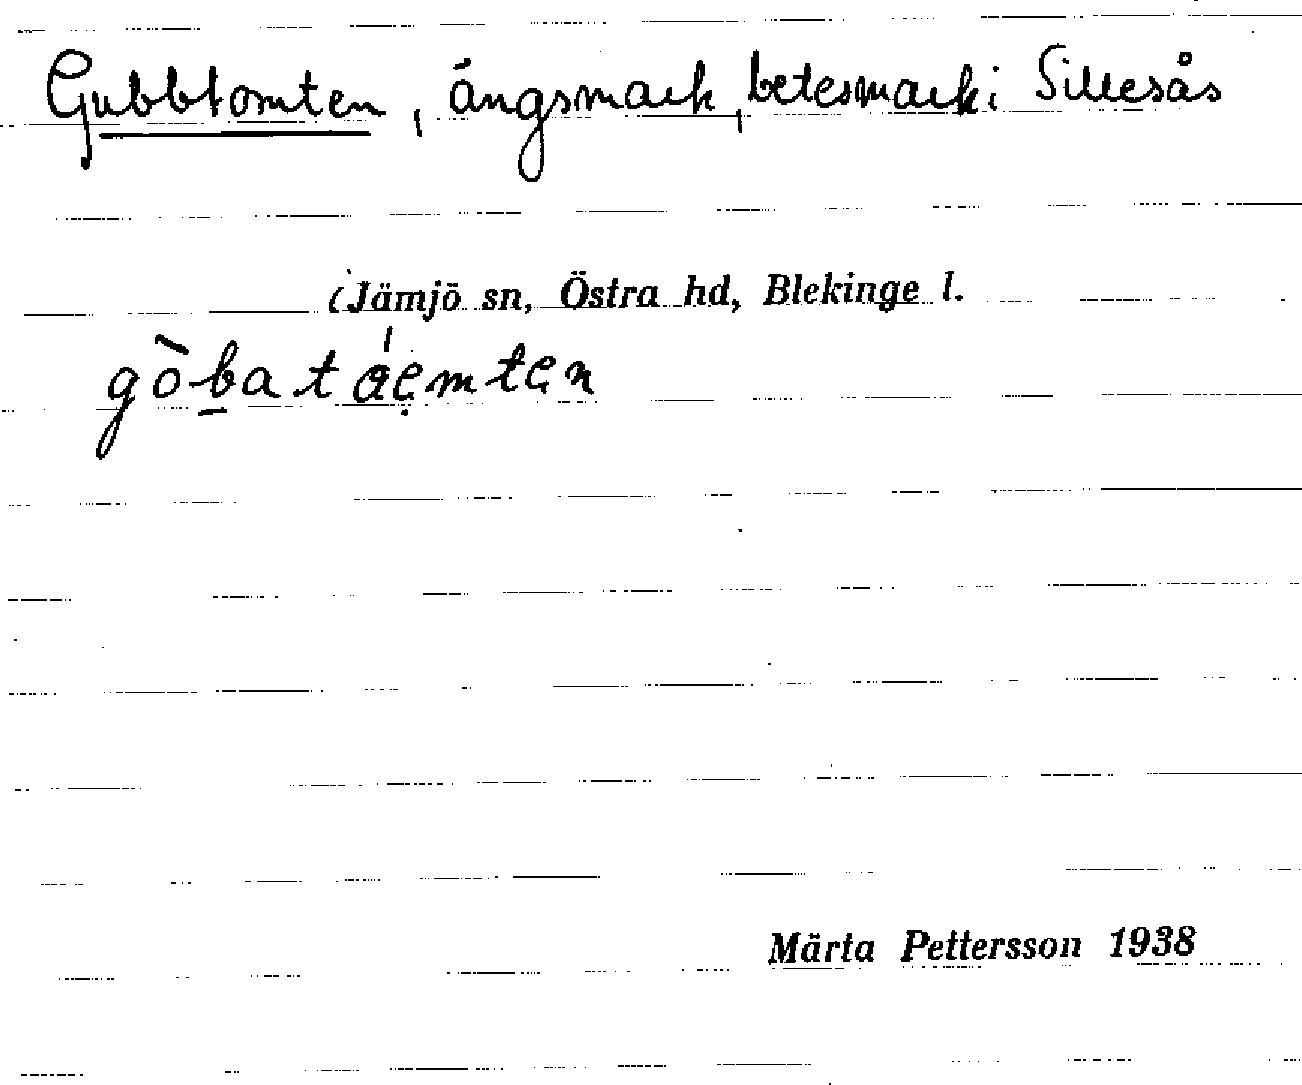 Gubbtomten, ängsmark, betesmark i Sillesås
(Jämjö sn, Östra hd, Blekinge l.
gòbatáẹmtẹn
Märta Pettersson 1938